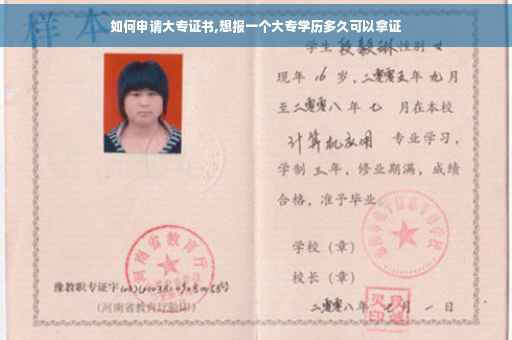 如何申请大专证书,想报一个大专学历多久可以拿证
样本
学生 段毅琳 性别 女
现年 16 岁,二零零五年 九 月
至二零零八年 七 月在本校
计算机应用 专业学习,
学制 三 年,修业期满,成绩
合格,准予毕业。
学校(章)
校长(章)
二零零八年 七 月 一 日
河南省教育厅
豫教职专证字
(河南省教育厅验印)